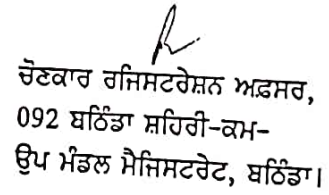 ਚੋਣਕਾਰ ਰਜਿਸਟਰੇਸ਼ਨ ਅਫ਼ਸਰ,
092 ਬਠਿੰਡਾ ਸ਼ਹਿਰੀ-ਕਮ-
ਉਪ ਮੰਡਲ ਮੈਜਿਸਟਰੇਟ, ਬਠਿੰਡਾ।